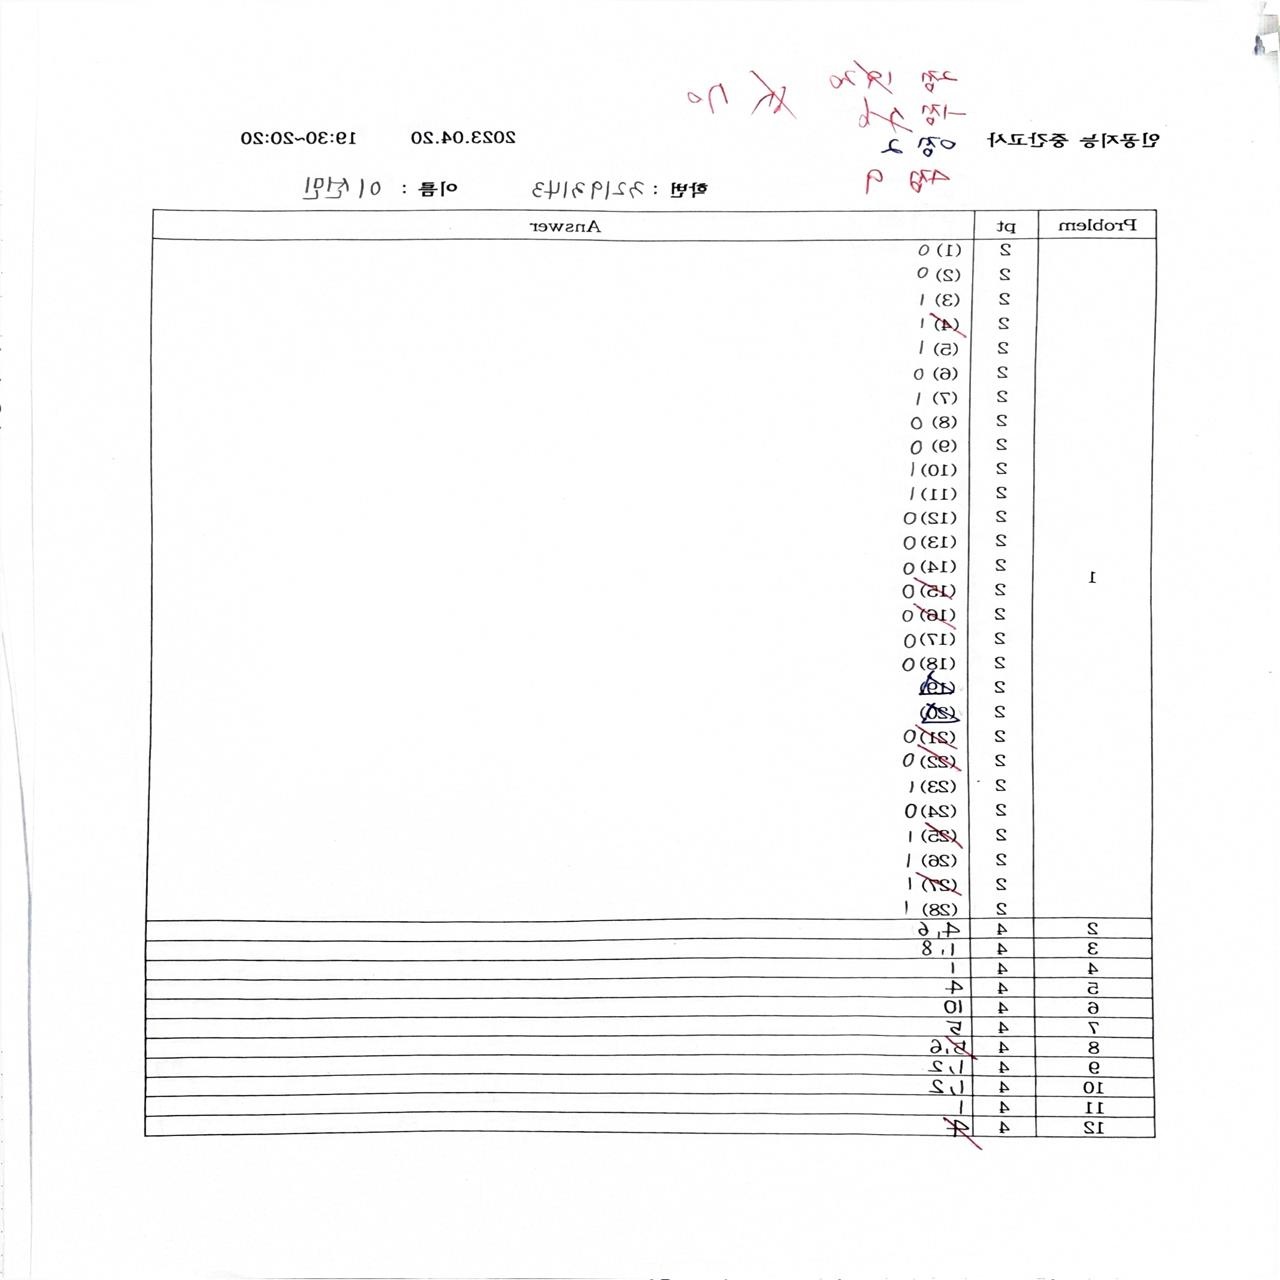 2점
1점
0점 2
4점 9
70
인공지능 중간고사 2023.04.20 19:30~20:20
학번 : 32193143 이름 : 이선민
Problem pt Answer
1
2 (1) 0
2 (2) 0
2 (3) 1
2 (4) 1
2 (5) 1
2 (6) 0
2 (7) 1
2 (8) 0
2 (9) 0
2 (10) 1
2 (11) 1
2 (12) 0
2 (13) 0
2 (14) 0
2 (15) 0
2 (16) 0
2 (17) 0
2 (18) 0
2 (19)
2 (20)
2 (21) 0
2 (22) 0
2 (23) 1
2 (24) 0
2 (25) 1
2 (26) 1
2 (27) 1
2 (28) 1
2 4 4, 6
3 4 1, 8
4 4 1
5 4 4
6 4 10
7 4 5
8 4 5, 6
9 4 1, 2
10 4 1, 2
11 4 1
12 4 4